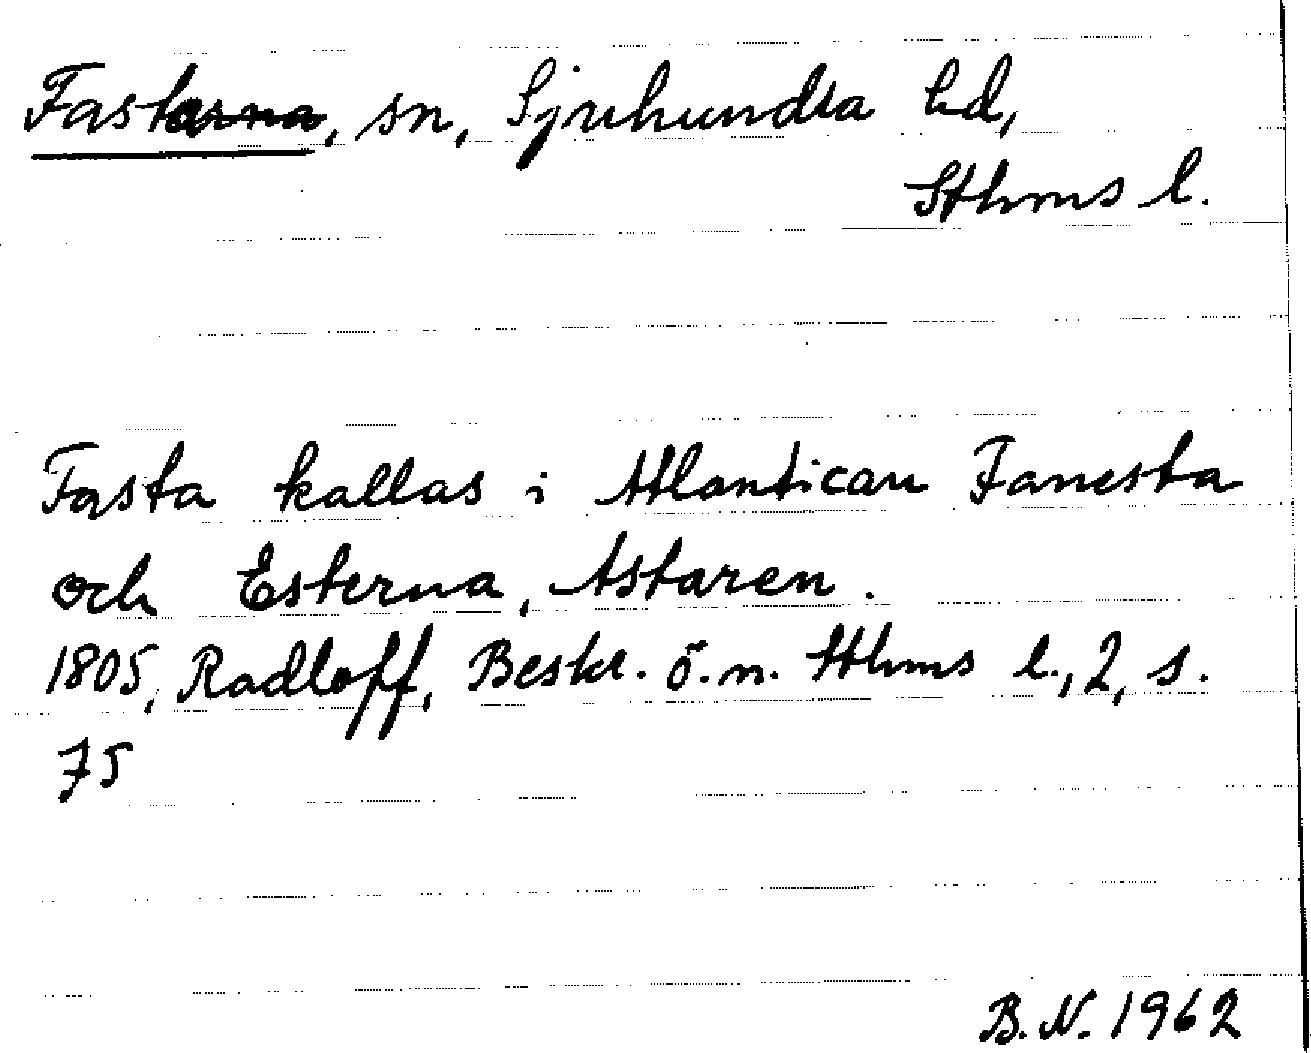 Fasterna, sn, Sjuhundra hd,
Sthms l.
Fasta kallas i Atlantican Fanesta
och Esterna, Astaren.
1805, Radloff, Beskr. ö. n. Sthms l., 2, s.
75
B. N. 1962